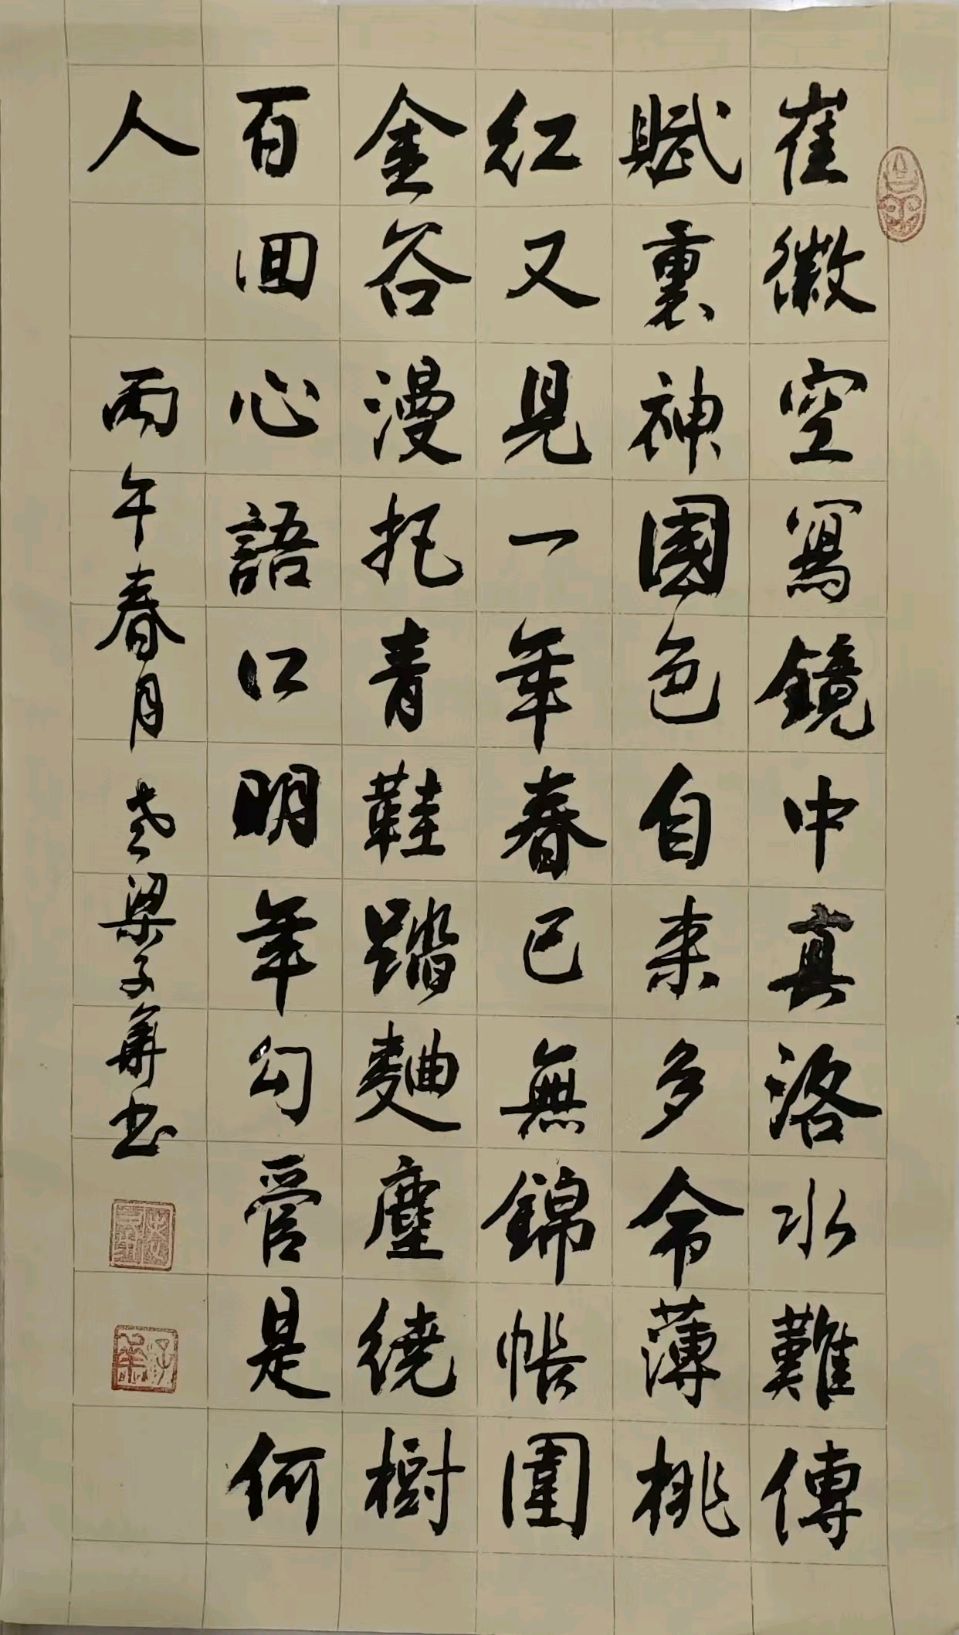 崔徽空寫鏡中真洛水難傳
賦裏神國色自来多命薄桃
紅又見一年春已無錦帳圍
金谷漫托青鞋踏麯塵繞樹
百回心語口明年勾管是何
人
丙午春月 老梁子華书